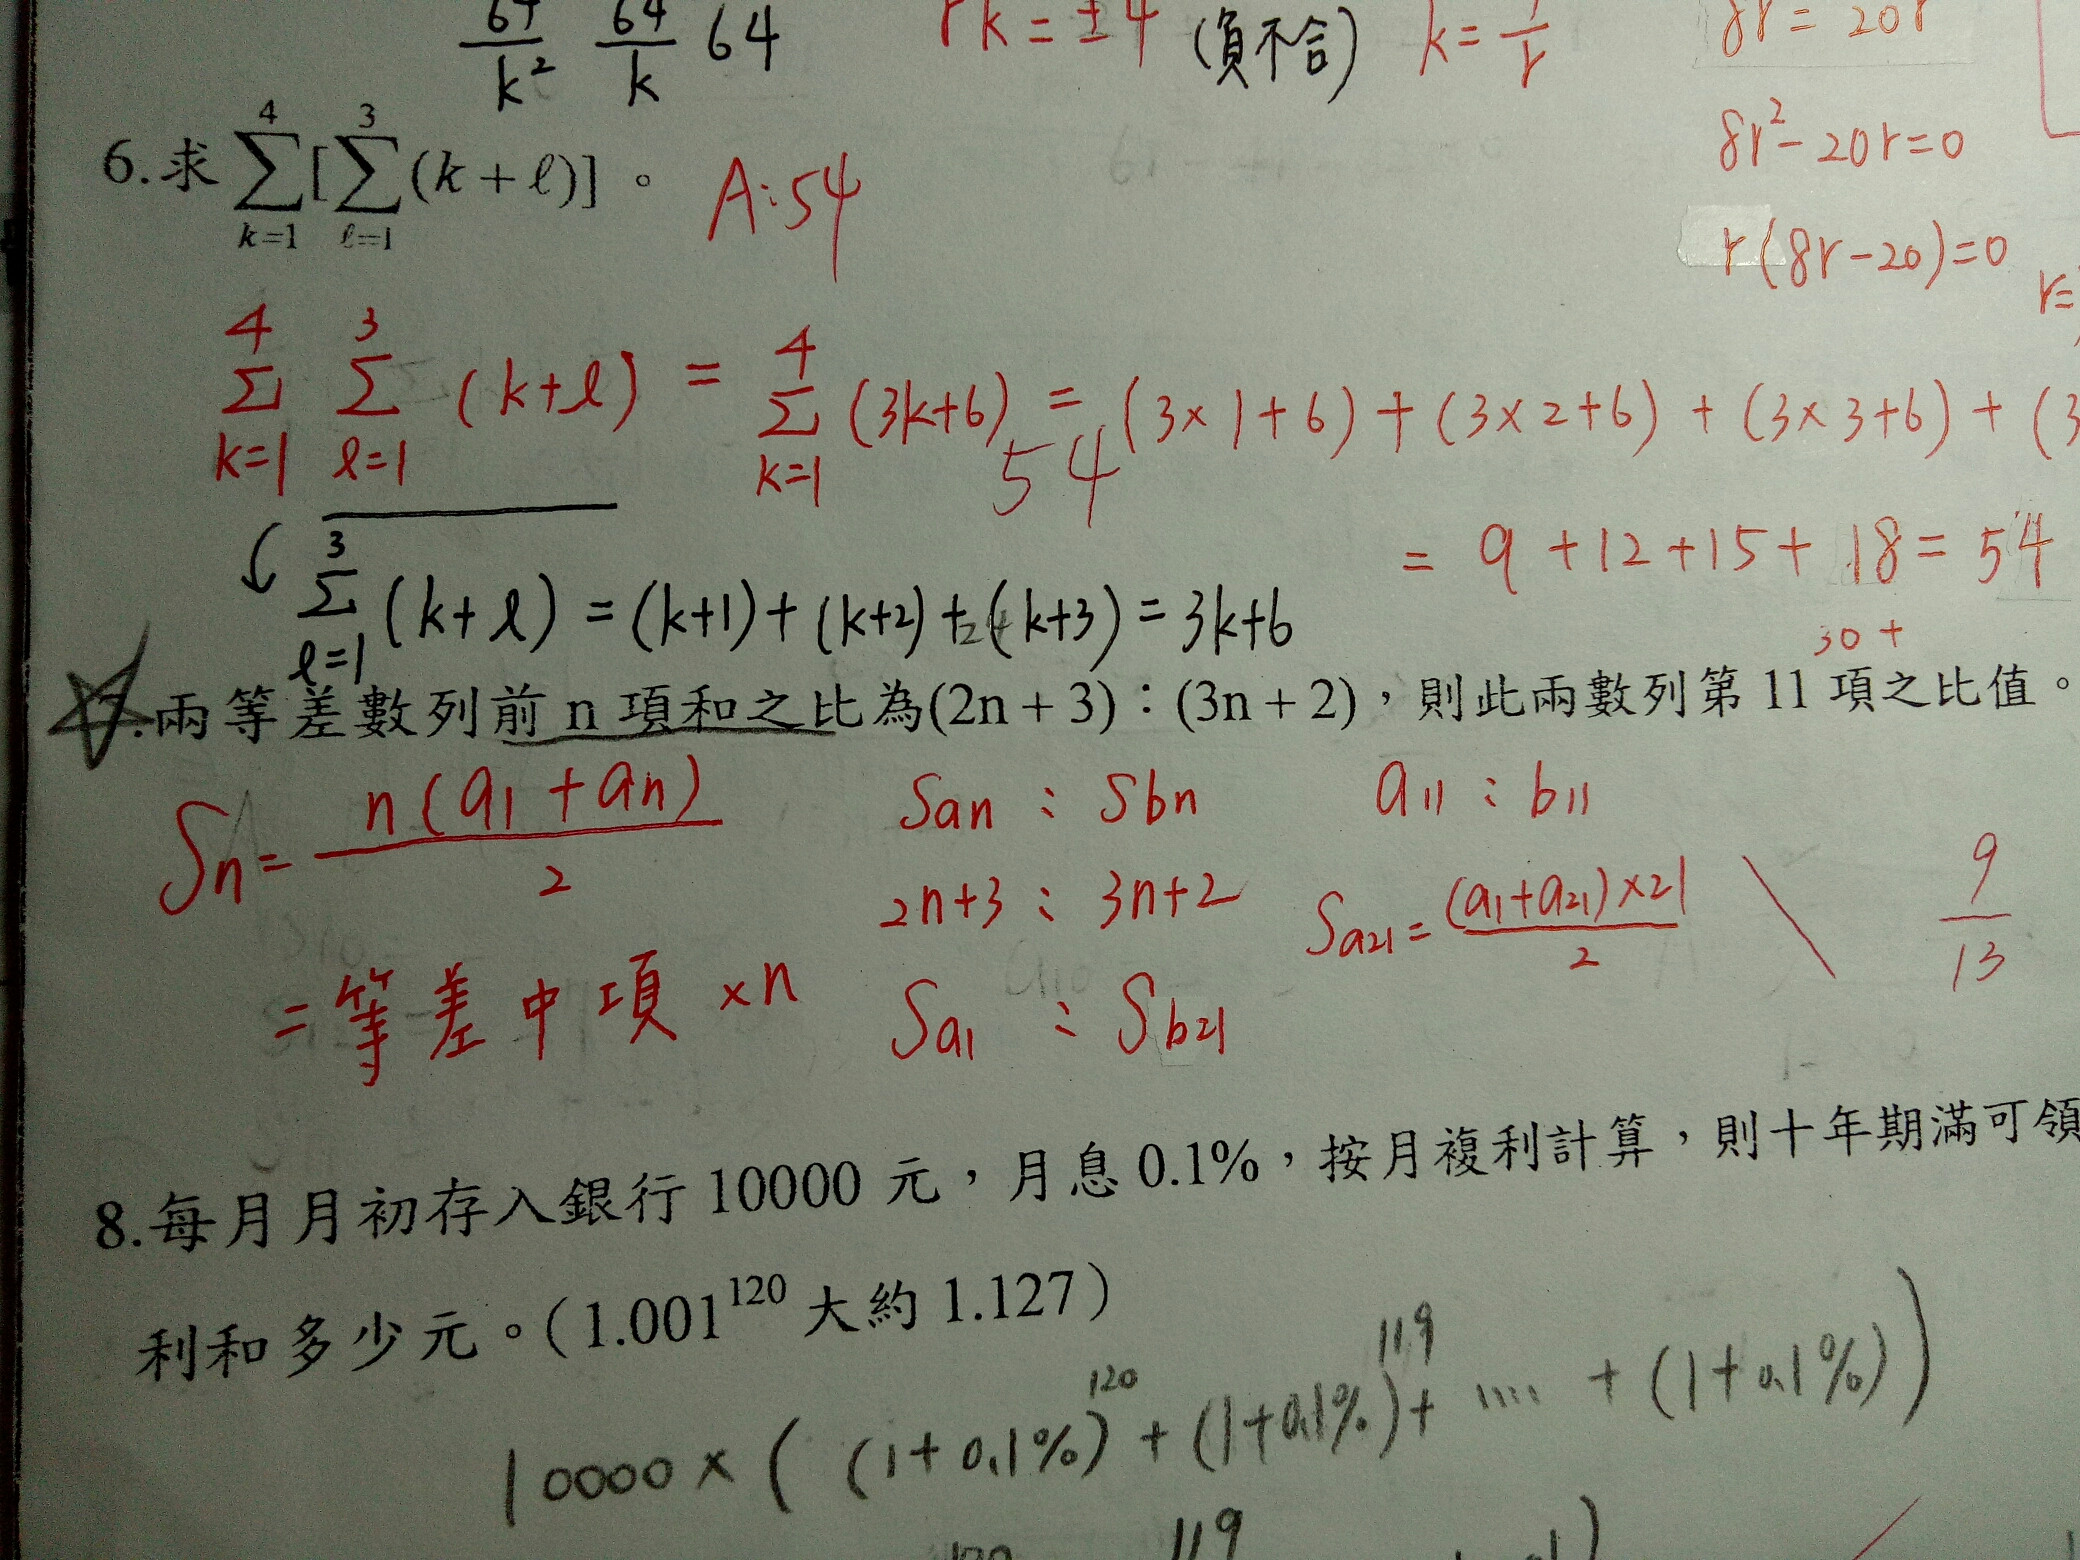 64/k² 64/k 64 rk = ±4 (負不合) k = 8r = 20r
8r² - 20r = 0
6.求 ∑_{k=1}^{4}[∑_{ℓ=1}^{3}(k + ℓ)] 。 A:54
r(8r - 20) = 0
r=
∑_{k=1}^{4} ∑_{ℓ=1}^{3} (k+ℓ) = ∑_{k=1}^{4} (3k+6) = (3×1+6) + (3×2+6) + (3×3+6) + (3
54
= 9 + 12 + 15 + 18 = 54
∑_{ℓ=1}^{3} (k+ℓ) = (k+1) + (k+2) + (k+3) = 3k+6
30 +
7.兩等差數列前 n 項和之比為(2n + 3)：(3n + 2)，則此兩數列第 11 項之比值。
Sn = n(a1 + an)/2 San : Sbn a11 : b11
2n+3 : 3n+2 Sa21 = (a1+a21)×21/2 9/13
= 等差中項 ×n Sa1 : Sb21
8.每月月初存入銀行 10000 元，月息 0.1%，按月複利計算，則十年期滿可領
利和多少元。(1.001^{120} 大約 1.127)
10000 × ( (1+0.1%)^{120} + (1+0.1%)^{119} + .... + (1+0.1%) )
119